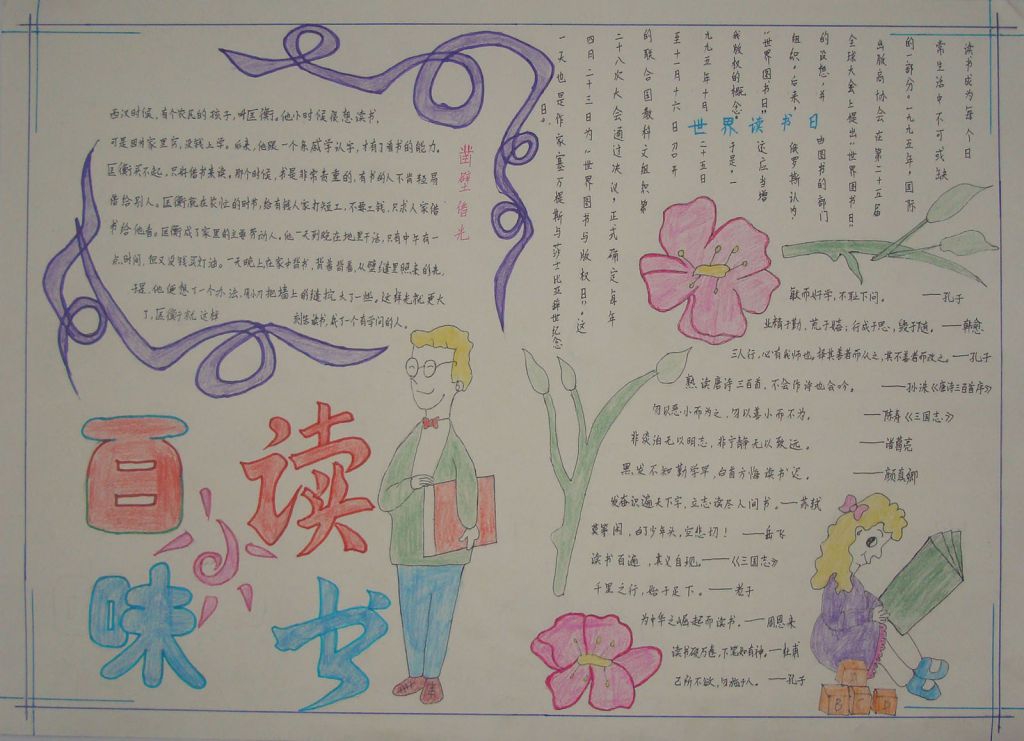 西汉时候，有个农民的孩子，叫匡衡。他小时候很想读书，
可是因为家里穷，没钱上学。后来，他跟一个亲戚学认字，才有了看书的能力。
匡衡买不起，只好借书来读。那个时候，书是非常贵重的，有书的人不肯轻易
借给别人。匡衡就在农忙的时节，给有钱人家打短工，不要工钱，只求人家借
书给他看。匡衡成了家里的主要劳动人。他一天到晚在地里干活，只有中午有一
点时间，但又没钱买灯油。一天晚上在家中背书，背着背着，从壁缝里照来的光，
于是，他便想了一个办法，用小刀把墙上的缝挖大了一些。这样光就更大
了，匡衡就这样
刻苦读书，成了一个有学问的人。
凿壁借光
世界读书日
读书成为每个日
常生活中不可或缺
的一部分。一九九五年，国际
出版商协会在第二十五届
全球大会上提出“世界图书日”
的设想，并
由图书的部门
组织，后来，
俄罗斯认为，
“世界图书日”
还应当增
版权的概念。
于是，一
九九五年十月
二十五日
至十一月十六日召开
的联合国教科文组织第
二十八次大会通过决议，正式确定每年
四月二十三日为“世界图书与版权日”。这
一天也是作家塞万提斯与莎士比亚辞世纪念
日。
敏而好学，不耻下问。——孔子
业精于勤，荒于嬉；行成于思，毁于随。——韩愈
三人行，必有我师也。择其善者而从之，其不善者而改之。——孔子
熟读唐诗三百首，不会作诗也会吟。——孙洙《唐诗三百首序》
勿以恶小而为之，勿以善小而不为。——陈寿《三国志》
非淡泊无以明志，非宁静无以致远。——诸葛亮
黑发不知勤学早，白首方悔读书迟。——颜真卿
发奋识遍天下字，立志读尽人间书。——苏轼
莫等闲，白了少年头，空悲切！——岳飞
读书百遍，其义自现。——《三国志》
千里之行，始于足下。——老子
为中华之崛起而读书。——周恩来
读书破万卷，下笔如有神。——杜甫
己所不欲，勿施于人。——孔子
百味
小
读书
A
B C D